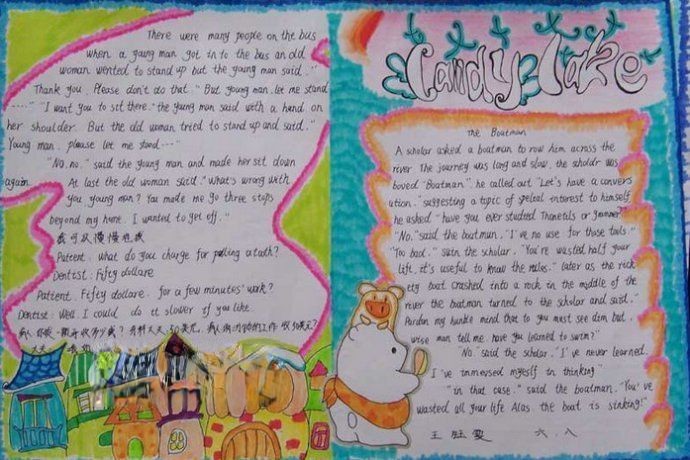 There were many people on the bus
when a young man got in to the bus an old
woman wented to stand up but the young man said."
Thank you. Please don't do that." But young man, let me stand
......" "I want you to sit there." the young man said with a hand on
her shoulder. But the old woman tried to stand up and said."
Young man, please let me stand....."
"No, no," said the young man and made her set down
again. At last the old woman said. "What's wrong with
you young man? You made me go three stops
beyond my home. I wanted to get off."
我可以慢慢
Patient: what do you charge for pulling a tooth?
Dentist: Fifty dollare
Patient: Fifty dollare. for a few minutes' work?
Dentist: Well I could do it slower if you like.
Candy Take
The Boatman
A scholar asked a boatman to row him across the
river The journey was long and slow, the scholar was
boved "Boatman", he called out "Let's have a convers
ation, suggesting a topic of special interest to himself
he asked "have you ever studied or
"No." said the boatman, "I've no use for those tools."
"Too bad," said the scholar, "You're wasted half your
life, it's useful to know the rules." later as the rick
ety boat crashed into a rock in the middle of the
river the boatman turned to the scholar and said,"
Pardon my humble mind that to you must see dim but.
wise man tell me, have you learned to swim?"
"No," said the scholar, "I've never learned,
I've immersed myself in thinking"
"in that case," said the boatman, "You've
wasted all your life Alas the boat is sinking!"
王 雯 六.八